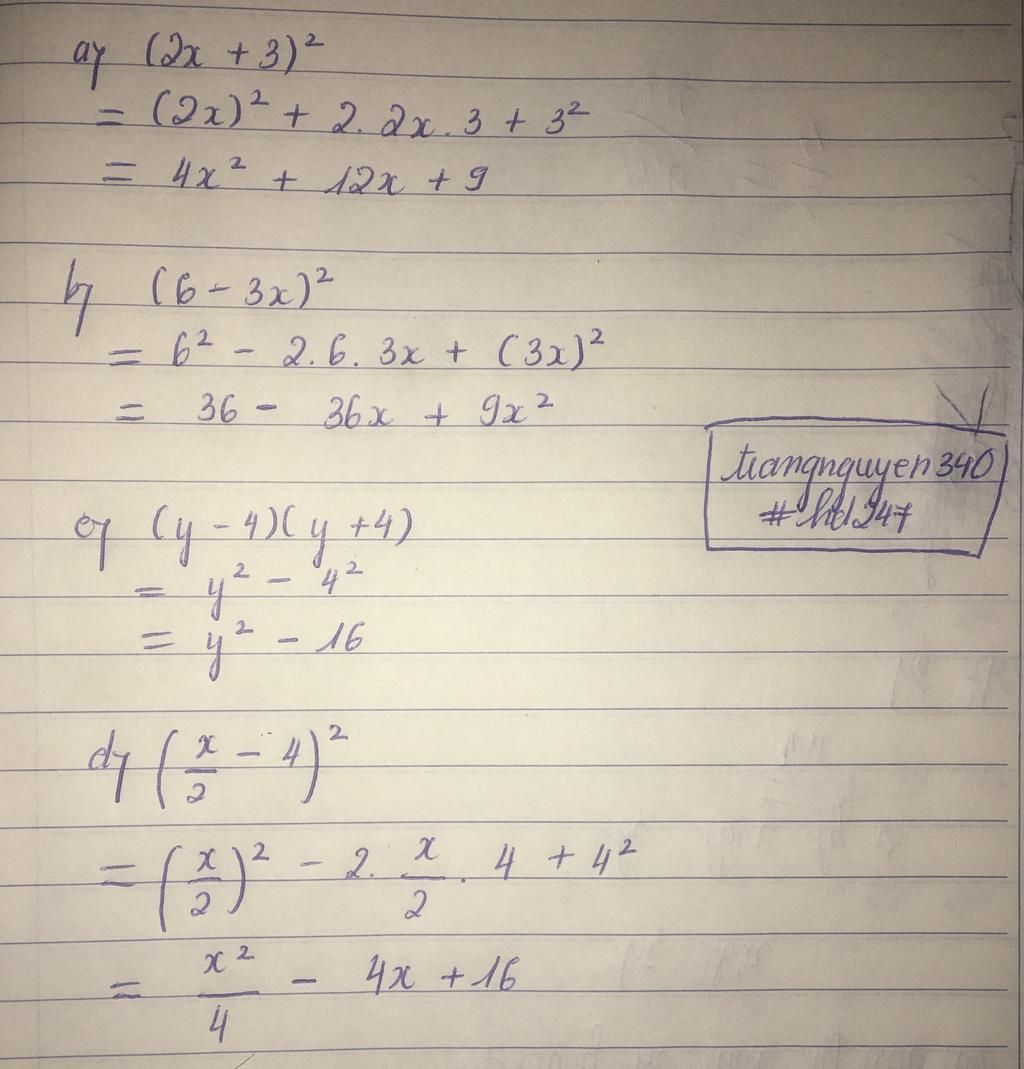 a) (2x + 3)²
= (2x)² + 2. 2x. 3 + 3²
= 4x² + 12x + 9
b) (6 - 3x)²
= 6² - 2. 6. 3x + (3x)²
= 36 - 36x + 9x²
trangnguyen340
#hd247
c) (y - 4)(y + 4)
= y² - 4²
= y² - 16
d) (x/2 - 4)²
= (x/2)² - 2. x/2 . 4 + 4²
= x²/4 - 4x + 16